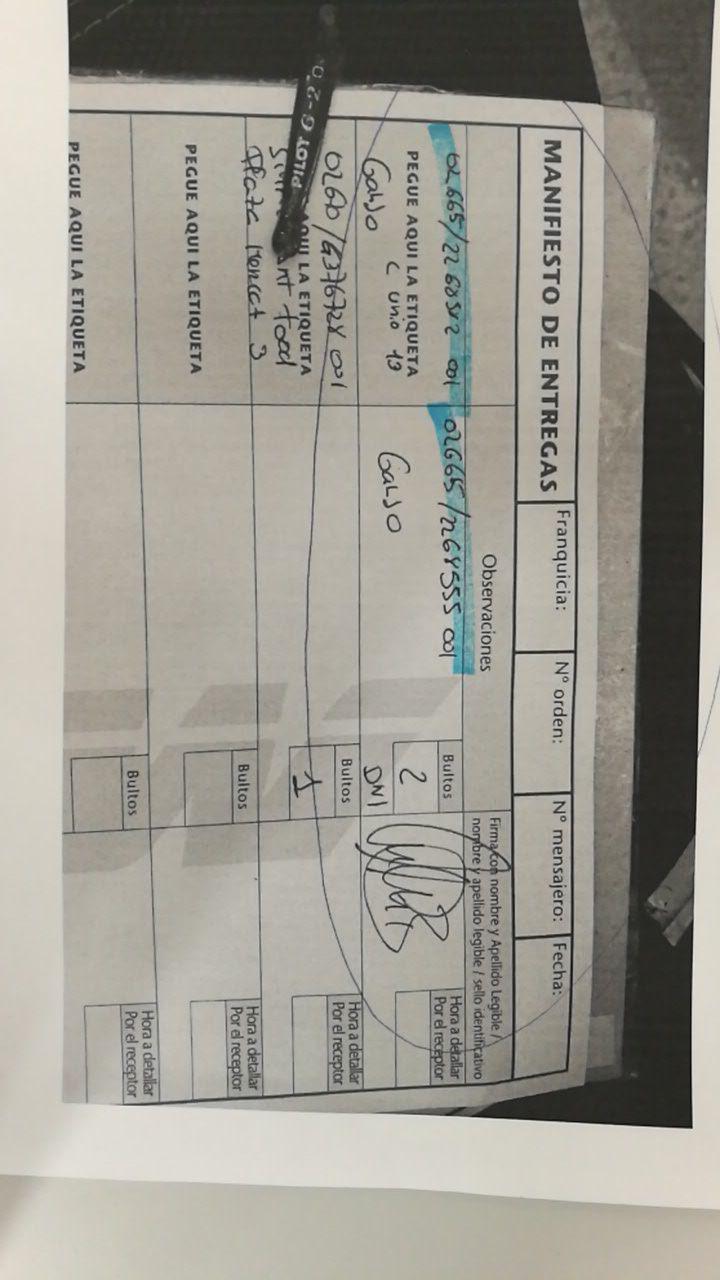 MANIFIESTO DE ENTREGAS
Franquicia:
Nº orden:
Nº mensajero:
Fecha:
Observaciones
Firma con nombre y Apellido Legible /
nombre y apellido legible / sello identificativo
02665/2268555 001
PEGUE AQUI LA ETIQUETA
C Unio 19
GALSO
GALSO
Bultos
2
DNI
Hora a detallar
Por el receptor
001
AQUI LA ETIQUETA
food
3
PILOT G-2
Bultos
1
Hora a detallar
Por el receptor
PEGUE AQUI LA ETIQUETA
Bultos
Hora a detallar
Por el receptor
PEGUE AQUI LA ETIQUETA
Bultos
Hora a detallar
Por el receptor